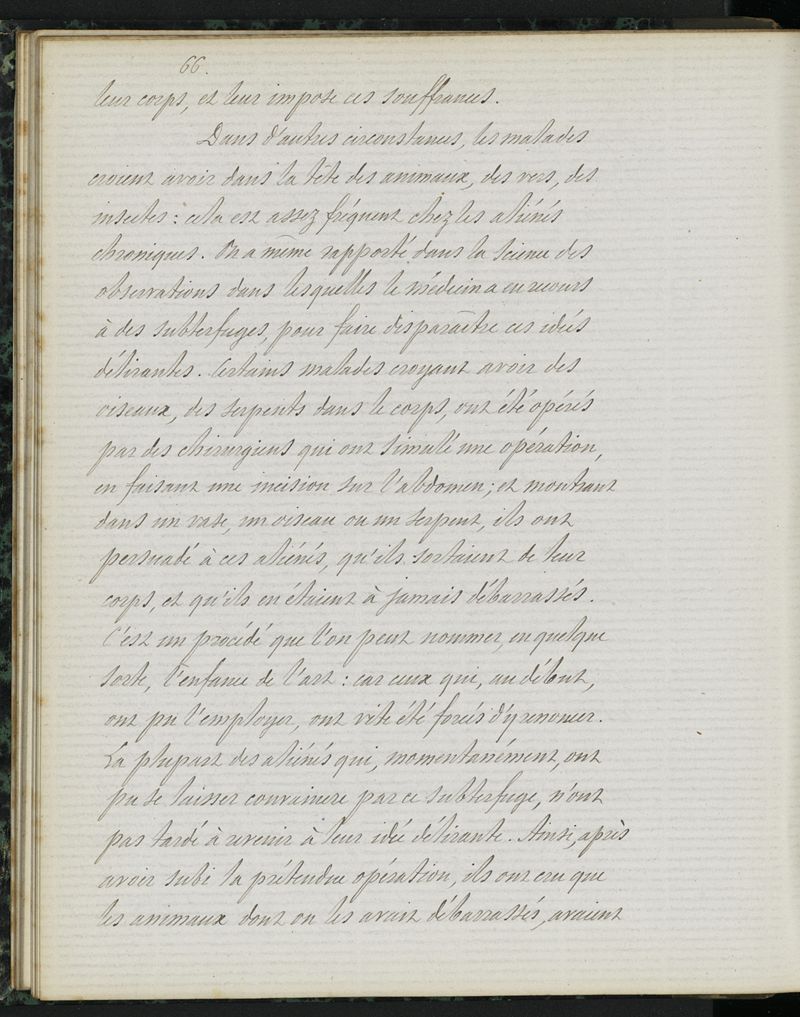 66.
leur corps, et leur impose ces souffrances.
Dans d'autres circonstances, les malades
croient avoir dans la tête des animaux, des vers, des
insectes : cela est assez fréquent chez les aliénés
chroniques. On a même rapporté dans la science des
observations dans lesquelles le médecin a eu recours
à des subterfuges, pour faire disparaître ces idées
délirantes. Certains malades croyant avoir des
oiseaux, des serpents dans le corps, ont été opérés
par des chirurgiens qui ont simulé une opération,
en faisant une incision sur l'abdomen ; et montrant
dans un vase, un oiseau ou un serpent, ils ont
persuadé à ces aliénés, qu'ils sortaient de leur
corps, et qu'ils en étaient à jamais débarrassés.
C'est un procédé que l'on peut nommer, en quelque
sorte, l'enfance de l'art : car ceux qui, au début,
ont pu l'employer, ont vite été forcés d'y renoncer.
La plupart des aliénés qui, momentanément, ont
pu se laisser convaincre par ce subterfuge, n'ont
pas tardé à revenir à leur idée délirante. Ainsi, après
avoir subi la prétendue opération, ils ont cru que
les animaux dont on les avait débarrassés, avaient